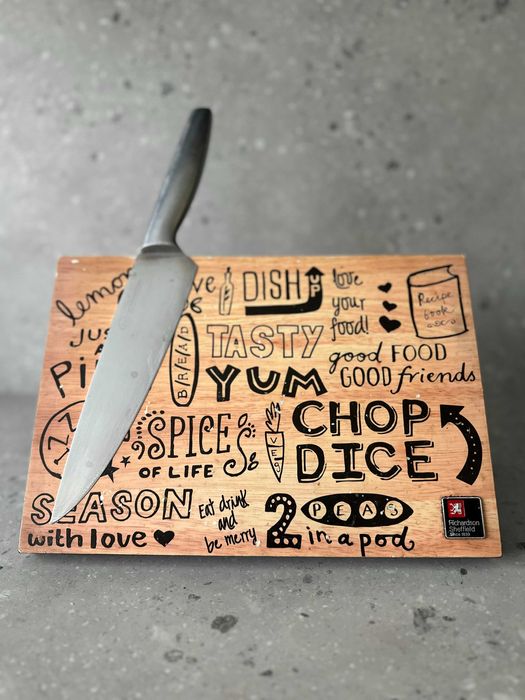 lemon
DISH UP
love
your
food!
Recipe
book
BREAD
TASTY
YUM
good FOOD
GOOD friends
SPICES
OF LIFE
VEG
CHOP
DICE
SEASON
with love
Eat drink
and
be merry
2 PEAS
in a pod
Richardson
Sheffield